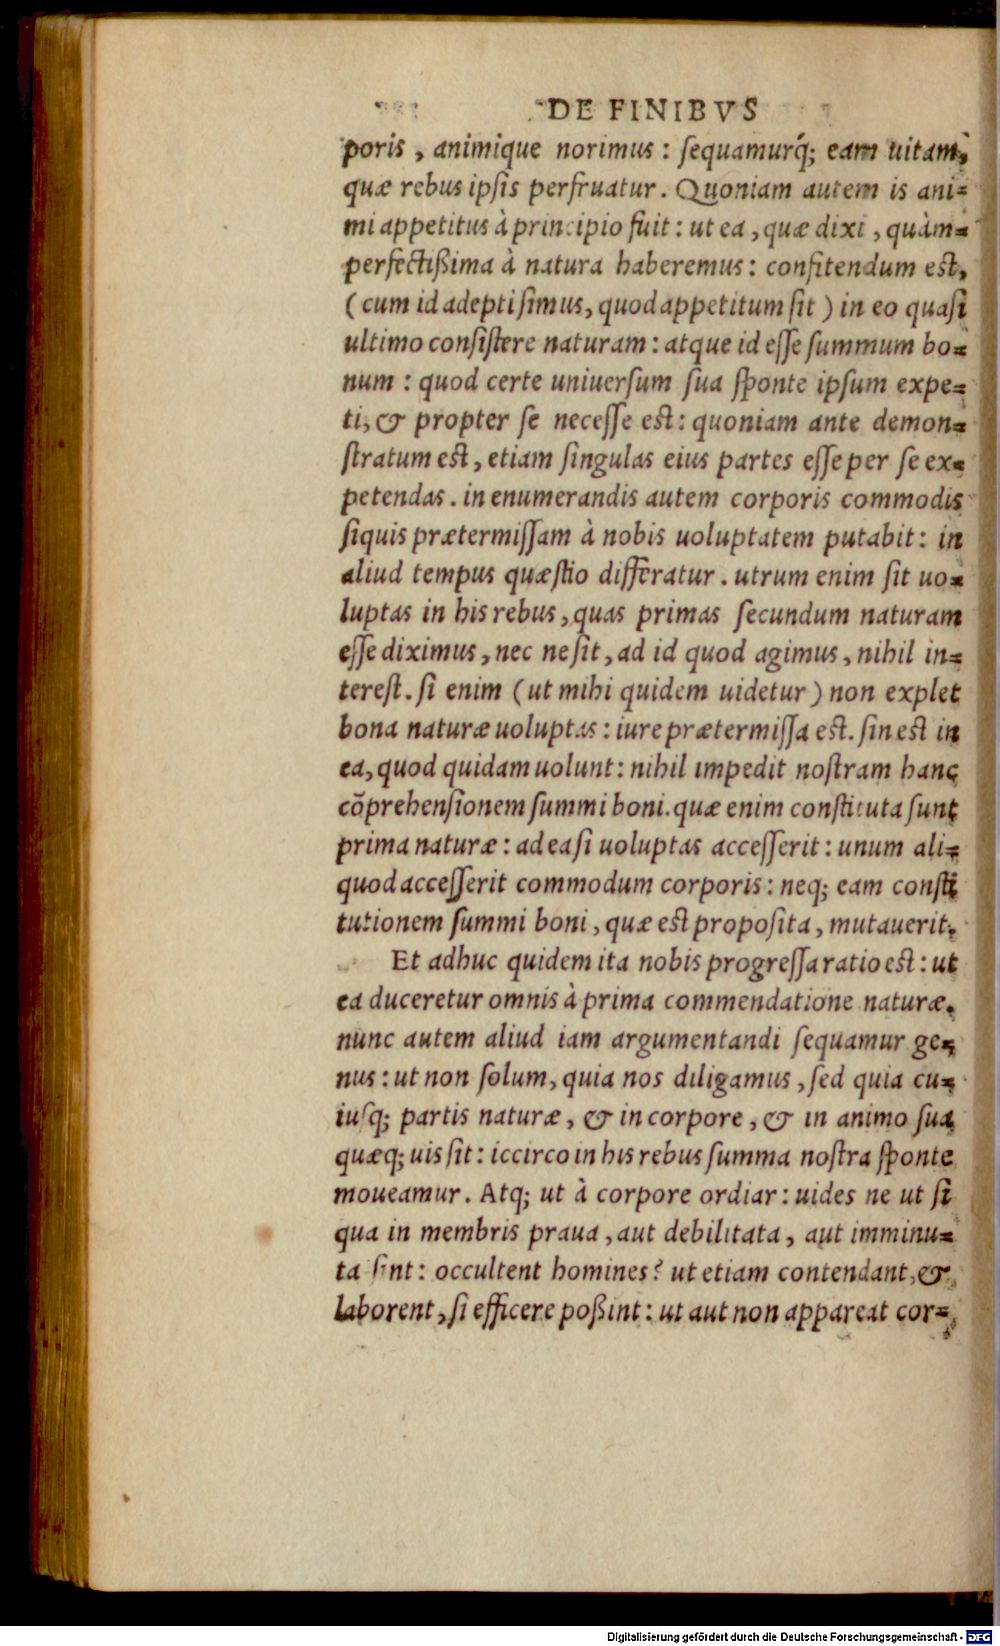 DE FINIBVS
poris, animique norimus: sequamurq́; eam uitam,
quæ rebus ipsis perfruatur. Quoniam autem is ani=
mi appetitus à principio fuit: ut ea, quæ dixi, quàm=
perfectißima à natura haberemus: confitendum est,
(cum id adepti simus, quod appetitum sit) in eo quasi
ultimo consistere naturam: atque id esse summum bo=
num: quod certe uniuersum sua sponte ipsum expe=
ti, & propter se necesse est: quoniam ante demon=
stratum est, etiam singulas eius partes esse per se ex=
petendas. in enumerandis autem corporis commodis
siquis prætermissam à nobis uoluptatem putabit: in
aliud tempus quæstio differatur. utrum enim sit uo=
luptas in his rebus, quas primas secundum naturam
esse diximus, nec ne sit, ad id quod agimus, nihil in=
terest. si enim (ut mihi quidem uidetur) non explet
bona naturæ uoluptas: iure prætermissa est. sin est in
ea, quod quidam uolunt: nihil impedit nostram hanc
cõprehensionem summi boni. quæ enim constituta sunt
prima naturæ: ad ea si uoluptas accesserit: unum ali=
quod accesserit commodum corporis: neq; eam consti
tutionem summi boni, quæ est proposita, mutauerit.
Et adhuc quidem ita nobis progressa ratio est: ut
ea duceretur omnis à prima commendatione naturæ.
nunc autem aliud iam argumentandi sequamur ge=
nus: ut non solum, quia nos diligamus, sed quia cu=
iusq; partis naturæ, & in corpore, & in animo sua
quæq; uis sit: iccirco in his rebus summa nostra sponte
moueamur. Atq; ut à corpore ordiar: uides ne ut si
qua in membris praua, aut debilitata, aut imminu=
ta sint: occultent homines? ut etiam contendant, &
laborent, si efficere poßint: ut aut non appareat cor=
Digitalisierung gefördert durch die Deutsche Forschungsgemeinschaft - DFG